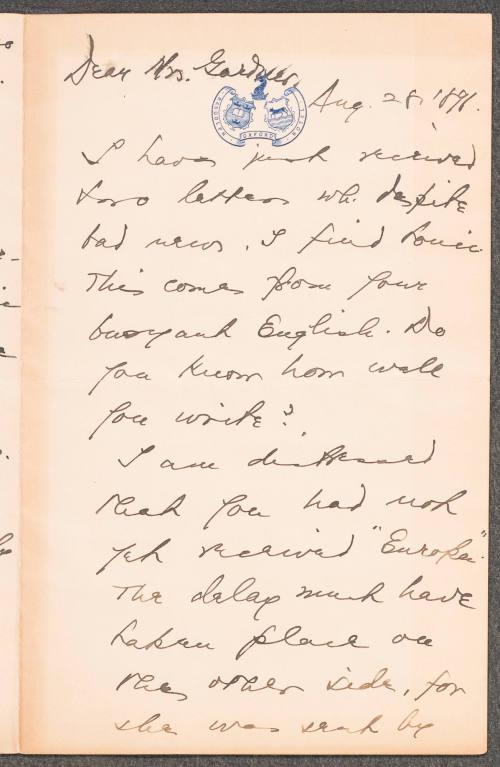 Dear Mrs. Gardner,
RANDOLPH OXFORD HOTEL
Aug. 28. 1896.
I have just received
two letters wh. despite
bad news, I find tonic.
This comes from your
buoyant English. Do
you know how well
you write?
I am distressed
that you had not
yet received "Europa".
The delay must have
taken place on
the other side, for
she was sent by